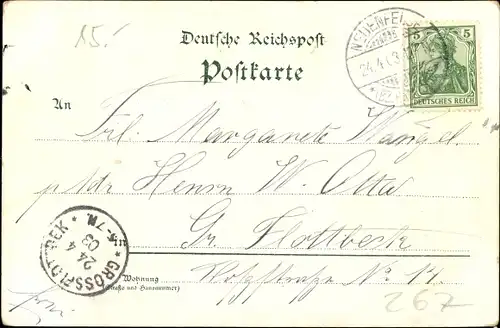 15.
Deutsche Reichspost
Postkarte
NEUENFELDE
24.4.03
5 5
DEUTSCHES REICH
An
Frl. Margarete Wangel.
p. Adr. Herrn W. Otto
in Gr. Flottbeck
GROSSFLOTTBEK
24 4 03
5-7N.
Wohnung
(Straße und Hausnummer)
No 14.
frei
267